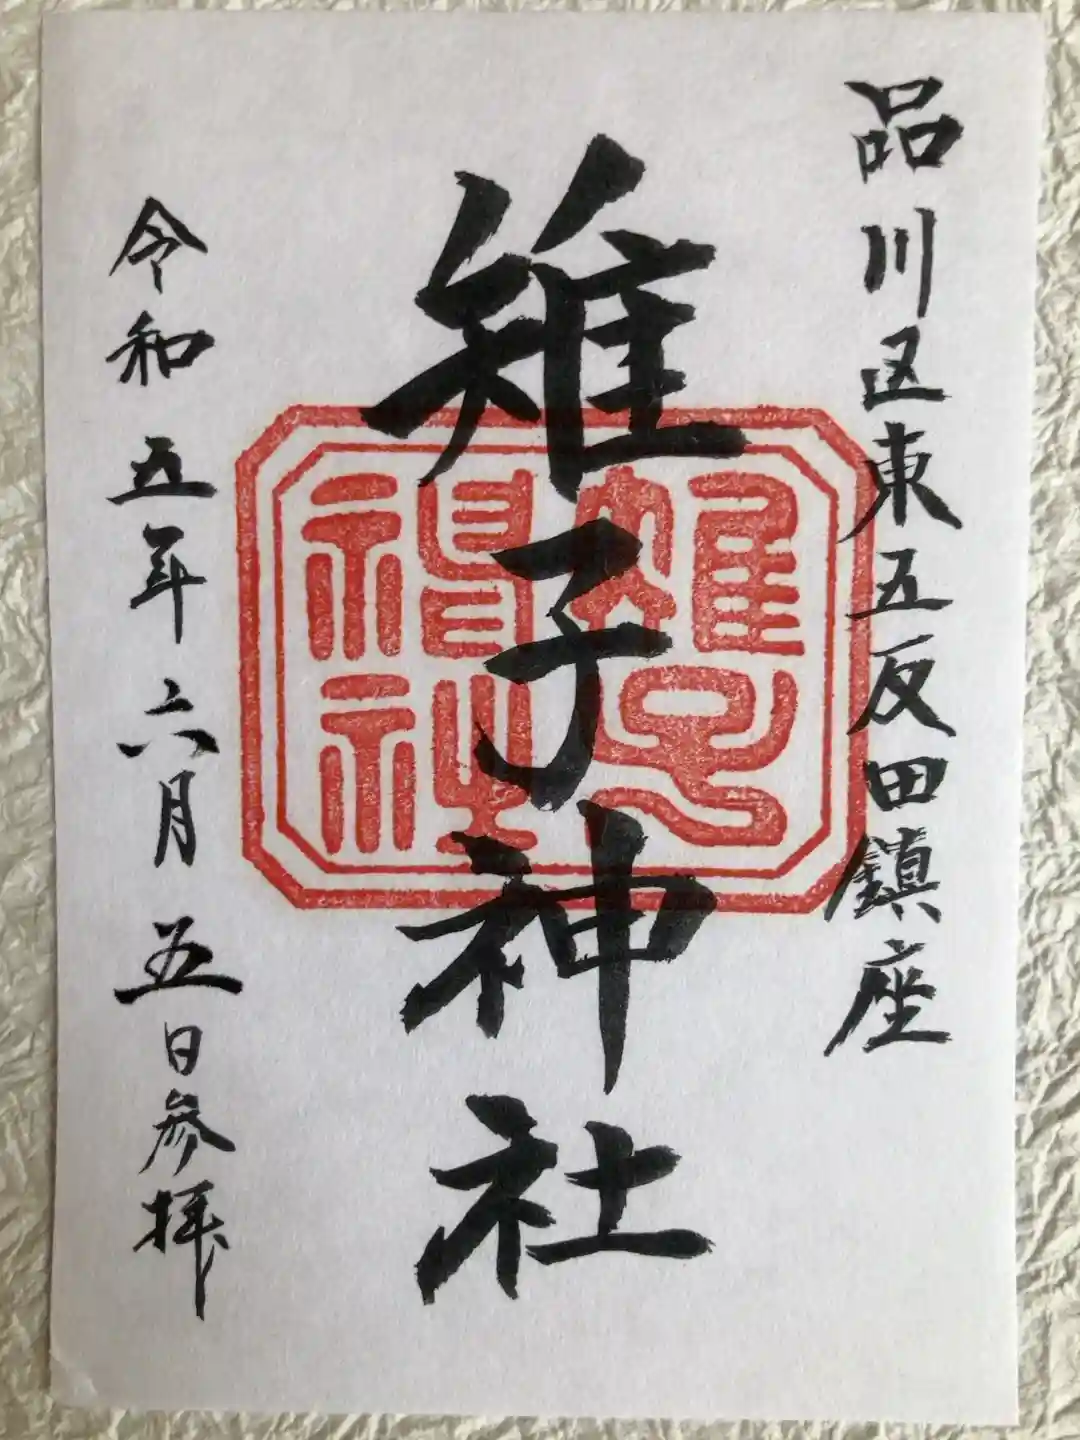 品川区東五反田鎮座
雉子神社
令和五年六月五日参拝
雉子神社